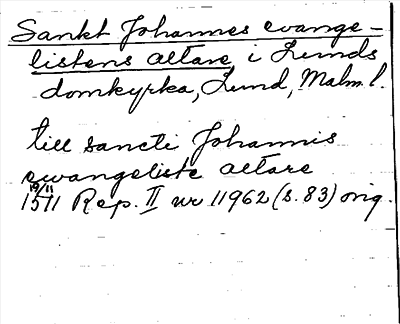 Sankt Johannes evange-
listens altare, i Lunds
domkyrka, Lund, Malm. l.
till sancti Johannis
ewangeliste altare
19/11
1511 Rep. II nr 11962 (s. 83) orig.